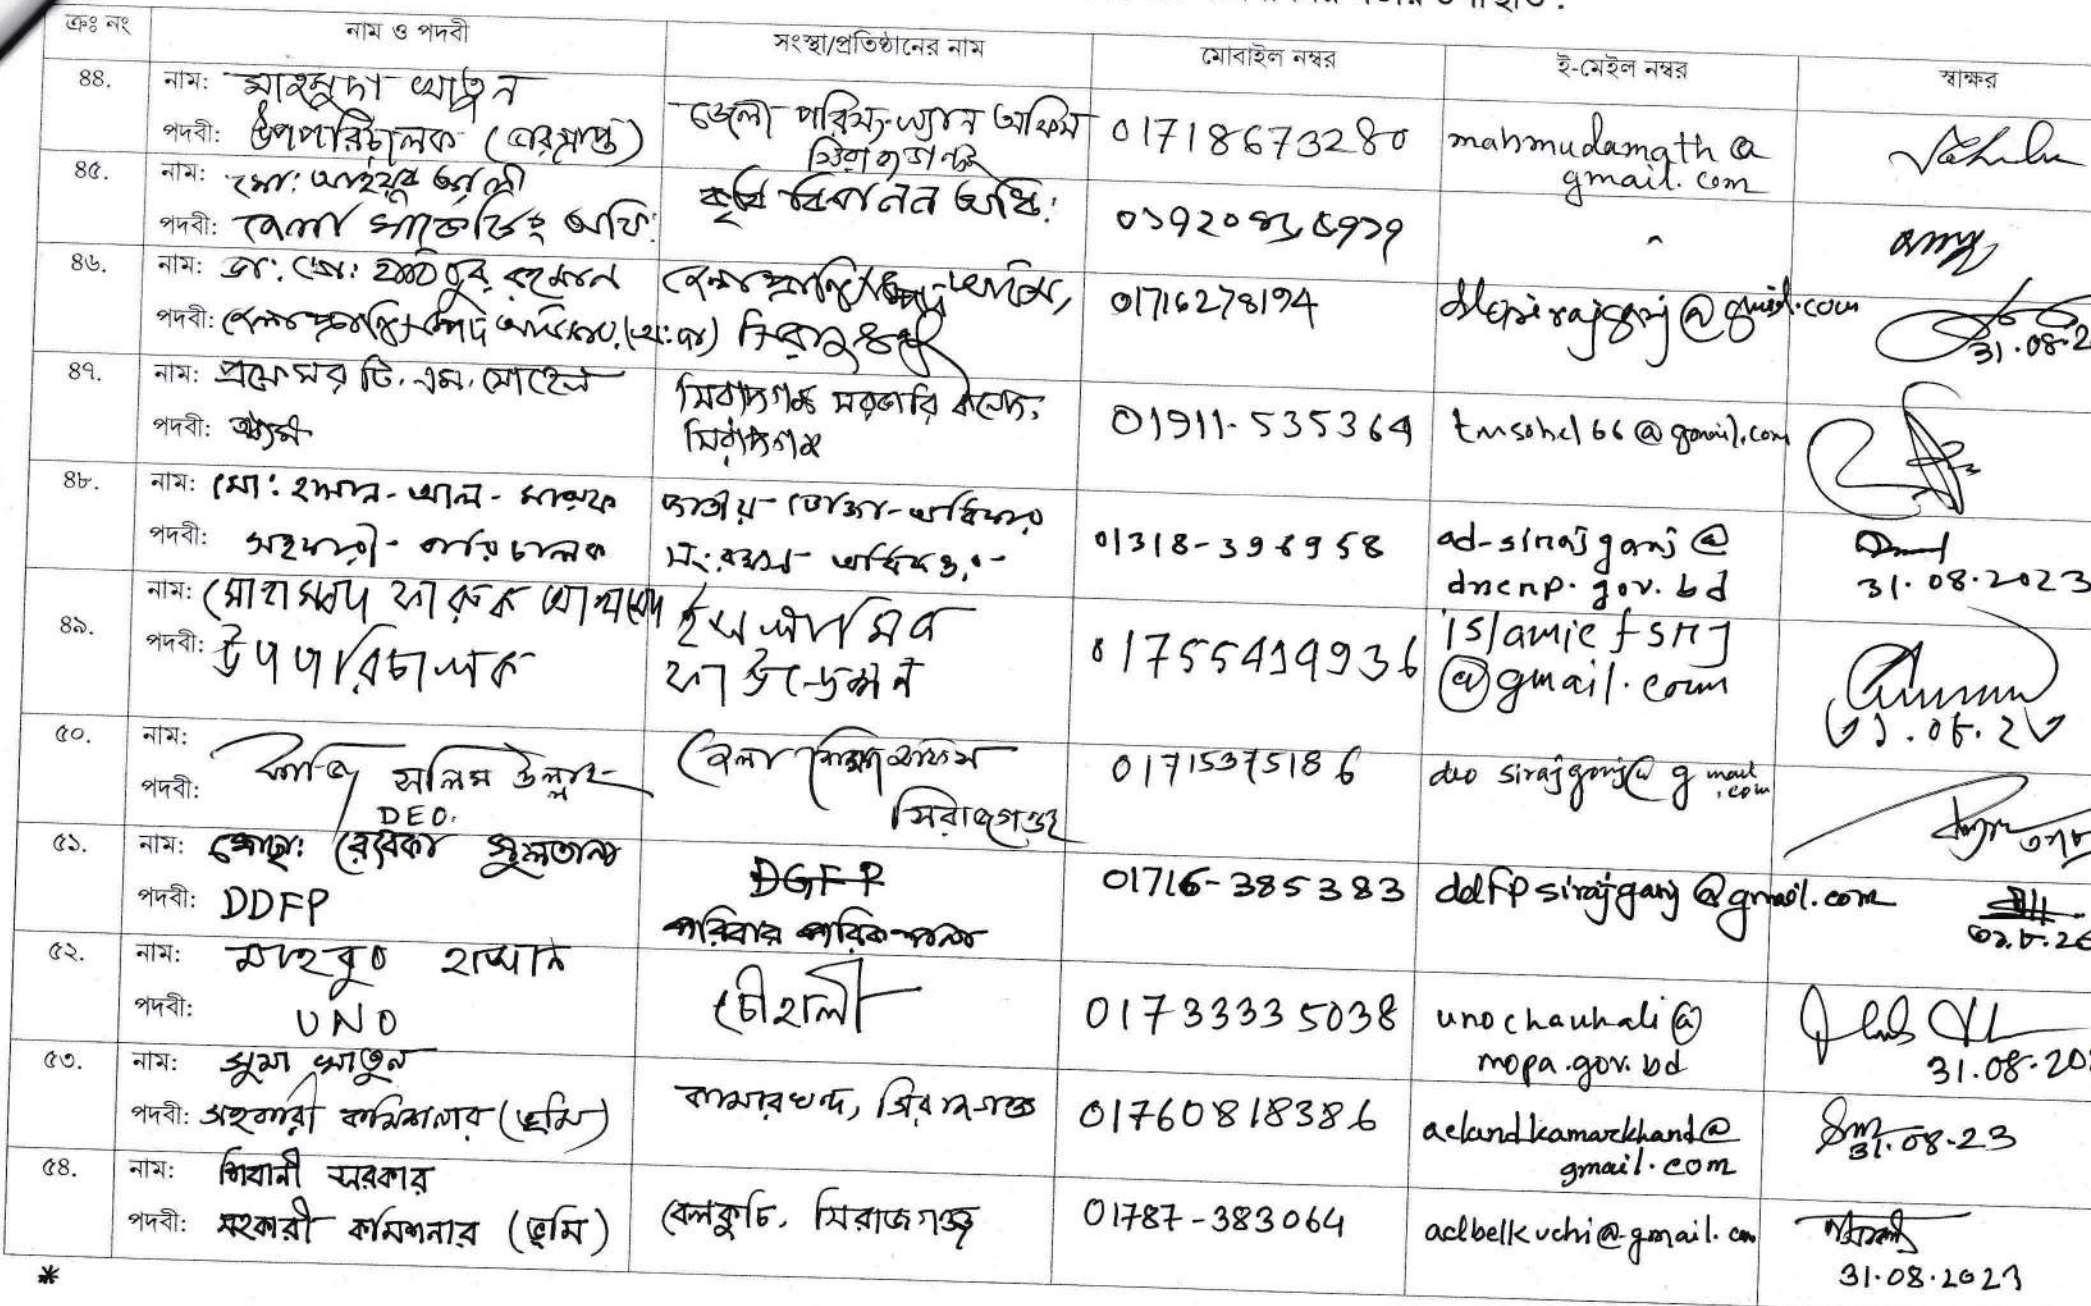 ক্রঃ নং নাম ও পদবী সংস্থা/প্রতিষ্ঠানের নাম মোবাইল নম্বর ই-মেইল নম্বর স্বাক্ষর
৪৪. নাম: মাহমুদা খাতুন
পদবী: উপপরিচালক (ভারপ্রাপ্ত)
জেলা পরিসংখ্যান অফিস
সিরাজগঞ্জ
01718673280
mahmudamath@
gmail.com
৪৫. নাম: মো: আইয়ুব আলী
পদবী: জেলা মার্কেটিং অফি:
কৃষি বিপনন অধি:
৪৬. নাম: ডা: মো: হাবিবুর রহমান
পদবী: জেলা প্রাণিসম্পদ
জেলা প্রাণিসম্পদ অফিস,
সিরাজগঞ্জ
01716278194
31.08.2
৪৭. নাম: প্রফেসর টি.এম. সোহেল
পদবী: অধ্যক্ষ
সিরাজগঞ্জ সরকারি কলেজ,
সিরাজগঞ্জ
01911-535364
tmsohel66@gmail.com
৪৮. নাম: মো: হাসান-আল-মারুফ
পদবী: সহকারী-পরিচালক
জাতীয়-ভোক্তা-অধিকার
সংরক্ষণ
ad-sirajganj@
dncrp.gov.bd
31.08.2023
৪৯. নাম: মোহাম্মদ ফারুক আহমেদ
পদবী: উপপরিচালক
ইসলামিক
ফাউন্ডেশন
01755499936
islamicfsrj
@gmail.com
৩১.০৮.২৩
৫০. নাম: কাজি সলিম উল্লাহ
পদবী: DEO.
জেলা শিক্ষা অফিস
সিরাজগঞ্জ
01715375186
deo sirajganj@gmail
.com
৫১. নাম: মোছা: রেবেকা সুলতানা
পদবী: DDFP
DGFP
পরিবার পরিকল্পনা
01716-385383
ddfpsirajganj@gmail.com
৫২. নাম: মাহবুব হাসান
পদবী: UNO
চৌহালী
01733335038
unochauhali@
mopa.gov.bd
31.08.20
৫৩. নাম: সুমা খাতুন
পদবী: সহকারী কমিশনার (ভূমি)
কামারখন্দ, সিরাজগঞ্জ
01760818386
aclandkamarkhand@
gmail.com
31.08-23
৫৪. নাম: শিবানী সরকার
পদবী: সহকারী কমিশনার (ভূমি)
বেলকুচি, সিরাজগঞ্জ
01787-383064
aclbelkuchi@gmail.com
31.08.2023
*